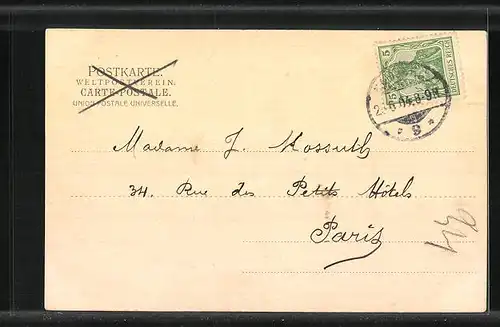 POSTKARTE.
WELTPOSTVEREIN.
CARTE-POSTALE.
UNION POSTALE UNIVERSELLE.
5
DEUTSCHES REICH
8-9N
S
Madame J. Kossuth
34. Rue des Petits Hôtels
Paris